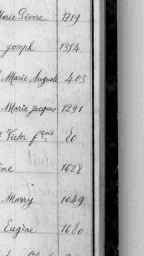 Marie Pierre 1219
Joseph 1354
Marie Auguste 403
Marie Jacques 1291
Victor fçois 20
1628
Mary 1049
Eugène 1680